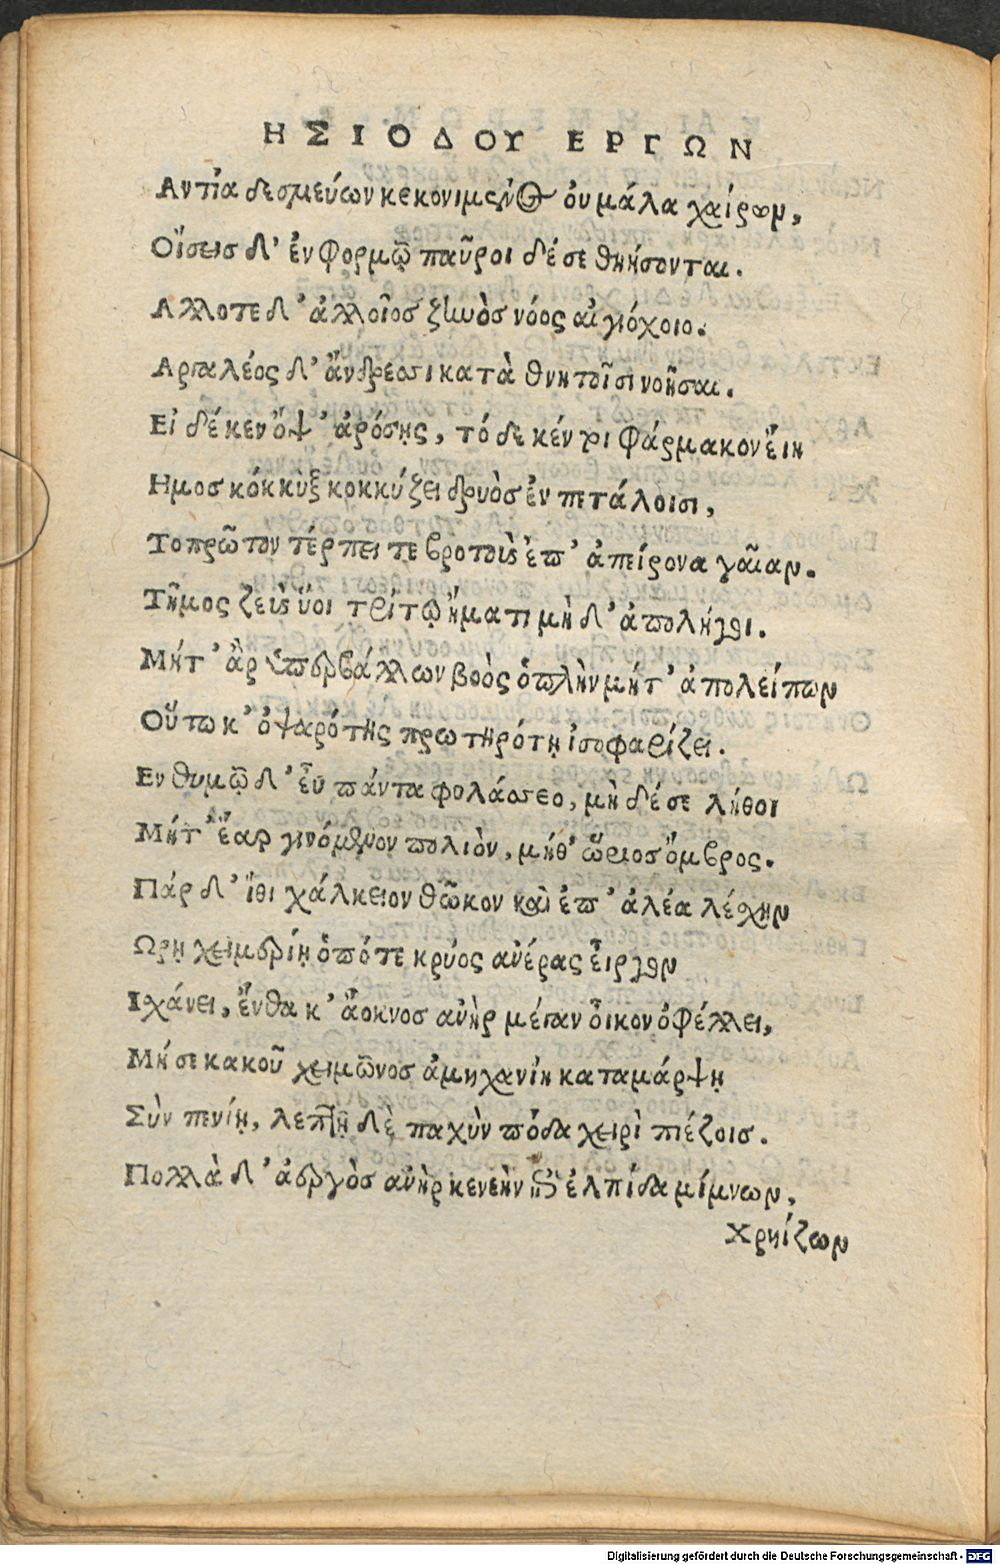 ΗΣΙΟΔΟΥ ΕΡΓΩΝ
Αντία δεσμεύων κεκονιμένος ὀυ μάλα χαίρων,
Οἴσεις δ' ἐν φορμῷ παῦροι δέ σε θηήσονται.
Αλλοτε δ' ἀλλοῖος ζηνὸς νόος αἰγιόχοιο.
Αργαλέος δ' ἄνδρεσσι κατὰ θνητοῖσι νοῆσαι.
Εἰ δέ κεν ὄψ' ἀρόσῃς, τό δε κέν τοι φάρμακον ἔιη
Ημος κόκκυξ κοκκύζει δρυὸς ἐν πετάλοισι,
Τοπρῶτον τέρπει τε βροτοὺς ἐπ' ἀπείρονα γαῖαν.
Τῆμος ζεὺς ὕοι τρίτῳ ἤματι μὴ δ' ἀπολήγοι.
Μήτ' ἂρ ὑπερβάλλων βοὸς ὁπλὴν μήτ' ἀπολείπων
Οὕτω κ' ὀψαρότης πρωτηρότῃ ἰσοφαρίζει.
Εν θυμῷ δ' ἐῦ πάντα φυλάσσεο, μὴ δέ σε λήθοι
Μήτ' ἔαρ γινόμενον πολιὸν, μήθ' ὥριος ὄμβρος.
Πάρ δ' ἴθι χάλκειον θῶκον καὶ ἐπ' ἀλέα λέσχην
Ωρῃ χειμερίῃ ὁπότε κρύος ἀνέρας εἶργον
Ισχάνει, ἔνθα κ' ἄοκνος ἀνὴρ μέγαν οἶκον ὀφέλλει,
Μή σε κακοῦ χειμῶνος ἀμηχανίη καταμάρψῃ
Σὺν πενίῃ, λεπτῇ δὲ παχὺν πόδα χειρὶ πιέζοις.
Πολλὰ δ' ἀεργὸς ἀνὴρ κενεὴν ἐπὶ ἐλπίδα μίμνων,
Χρηίζων
Digitalisierung gefördert durch die Deutsche Forschungsgemeinschaft - DFG